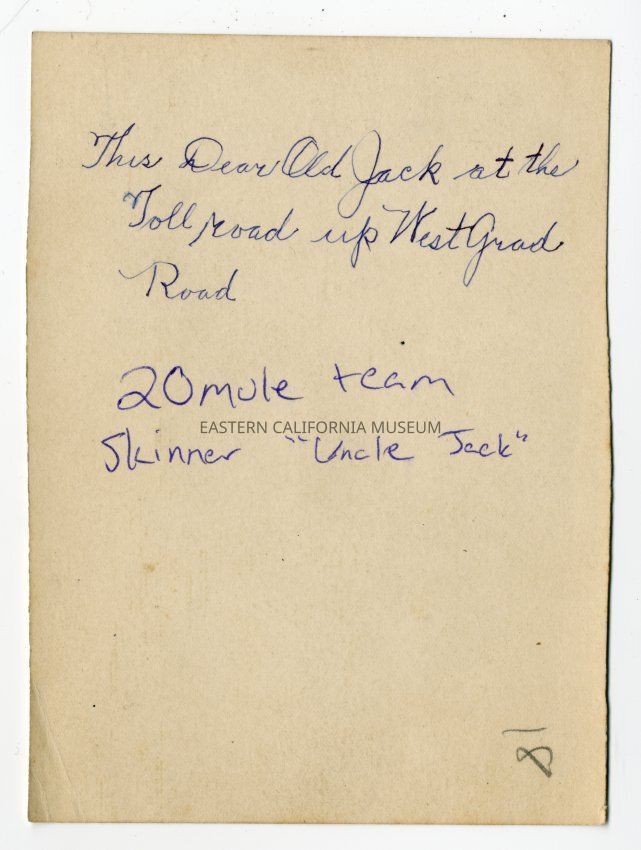 This Dear Old Jack at the
Toll road up West Grad
Road
20 mule team
EASTERN CALIFORNIA MUSEUM
Skinner "Uncle Jack"